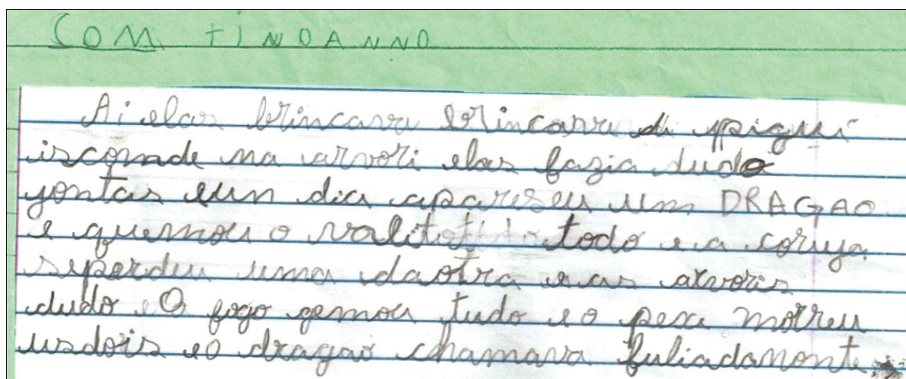 COM TINOANNO
Ai elas brincava brincava di pigui
isconde na arvori elas fazia dudo
yontas eun dia apareseu um DRAGAO
e quemou o valitoti todo e a coruja
siperdeu uma daotra e as arvoris
dudo e O fogo gemou tudo e o pexe morreu
usdois e o dragão chamava fuliadamonte